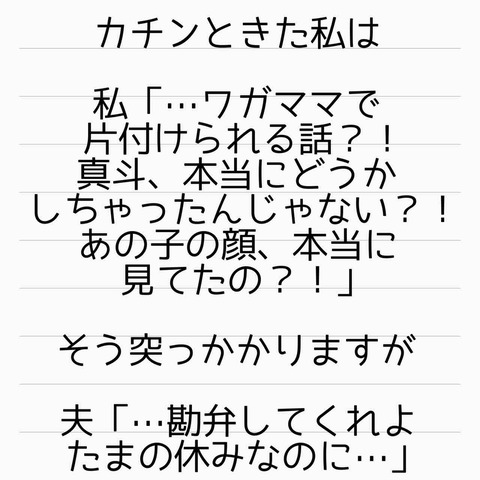 カチンときた私は
私「…ワガママで
片付けられる話？！
真斗、本当にどうか
しちゃったんじゃない？！
あの子の顔、本当に
見てたの？！」
そう突っかかりますが
夫「…勘弁してくれよ
たまの休みなのに…」